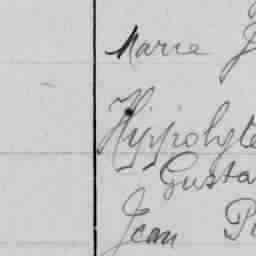 Marie
Hyppolyte
Gusta
Jean